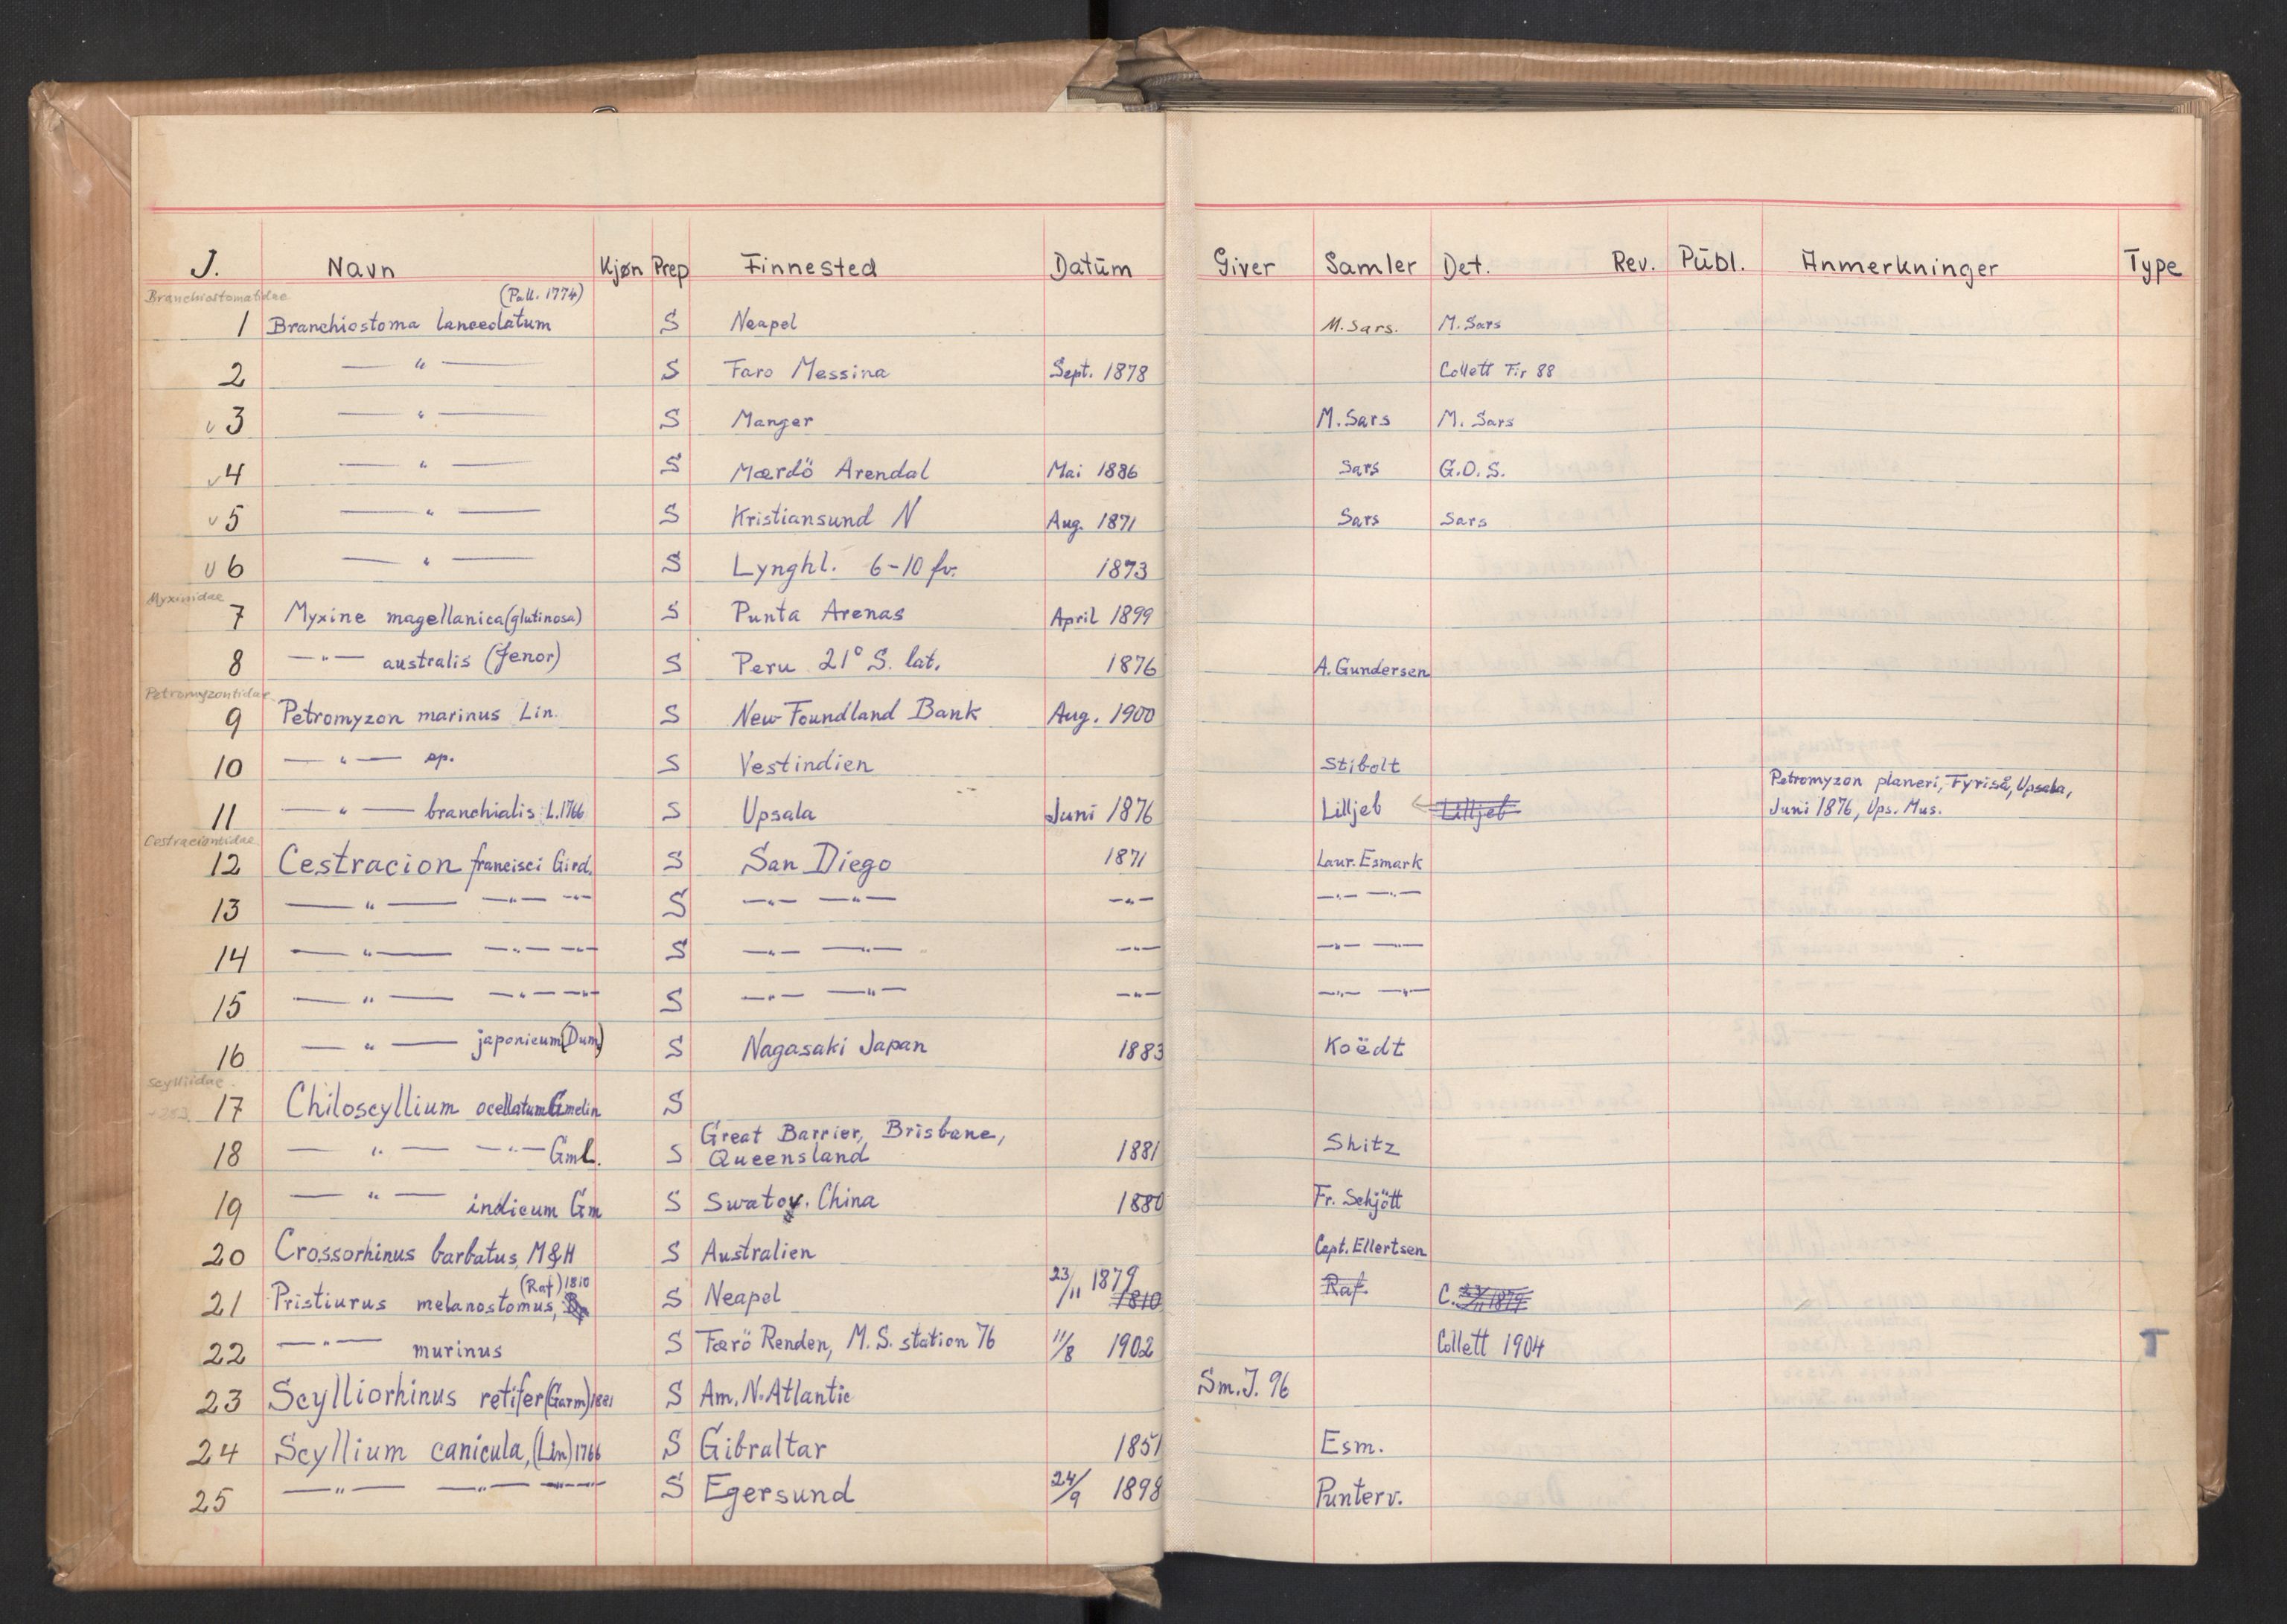 J. Navn Kjøn Prep Finnested Datum Giver Samler Det. Rev. Publ. Anmerkninger Type
Branchiostomatidae (Pall. 1774)
1 Branchiostoma lanceolatum S Neapel M. Sars. M. Sars
2 — " — S Faro Messina Sept. 1878 Collett Fir 88
v 3 — " — S Manger M. Sars M. Sars
v 4 — " — S Mærdö Arendal Mai 1886 Sars G.O.S.
v 5 — " — S Kristiansund N Aug. 1871 Sars Sars
v 6 — " — S Lynghl. 6-10 fv. 1873
Myxinidae
7 Myxine magellanica (glutinosa) S Punta Arenas April 1899
8 — " — australis (Jenor) S Peru 21° S. lat. 1876 A. Gundersen
Petromyzontidae
9 Petromyzon marinus Lin. S New Foundland Bank Aug. 1900
10 — " — sp. S Vestindien Stibolt
11 — " — branchialis L. 1766 S Upsala Juni 1876 Lilljeb Lilljeb Petromyzon planeri, Fyriså, Upsala,
Juni 1876, Ups. Mus.
Cestraciontidae
12 Cestracion francisci Gird. S San Diego 1871 Laur. Esmark
13 — " — — " — — " — S — " — — " — — " — — " — — " —
14 — " — — " — — " — S — " — — " — — " — — " — — " —
15 — " — — " — — " — S — " — — " — — " — — " — — " —
16 — " — japonicum (Dum) S Nagasaki Japan 1883 Koëdt
Scylliidae
17 Chiloscyllium ocellatum Gmelin S
18 — " — — " — Gml. S Great Barrier, Brisbane,
Queensland 1881 Shitz
19 — " — indicum Gm S Swatov. China 1880 Fr. Schjött
20 Crossorhinus barbatus, M & H S Australien Capt. Ellertsen
21 Pristiurus melanostomus, (Raf) 1810 S Neapel 23/11 1879 1810 Raf. C. 23/11 1879
22 — " — murinus S Færö Renden, M. S. station 76 11/8 1902 Collett 1904 T
23 Scylliorhinus retifer (Garm) 1881 S Am. N. Atlantic Sm. J. 96
24 Scyllium canicula, (Lin) 1766 S Gibraltar 1851 Esm.
25 — " — — " — — " — S Egersund 24/9 1898 Punterv.